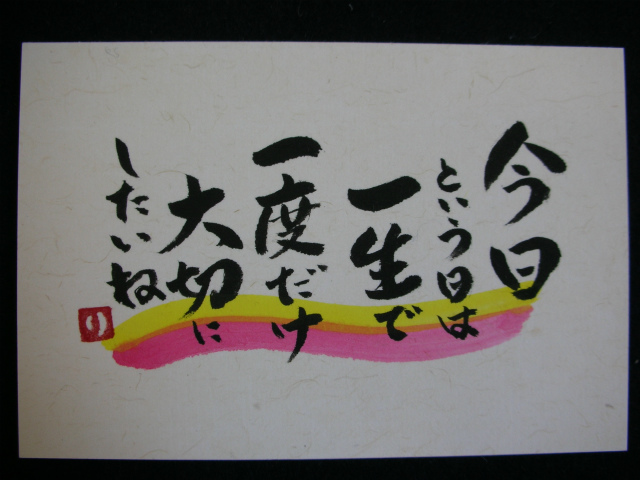 今日
という日は
一生で
一度だけ
大切に
したいね
の